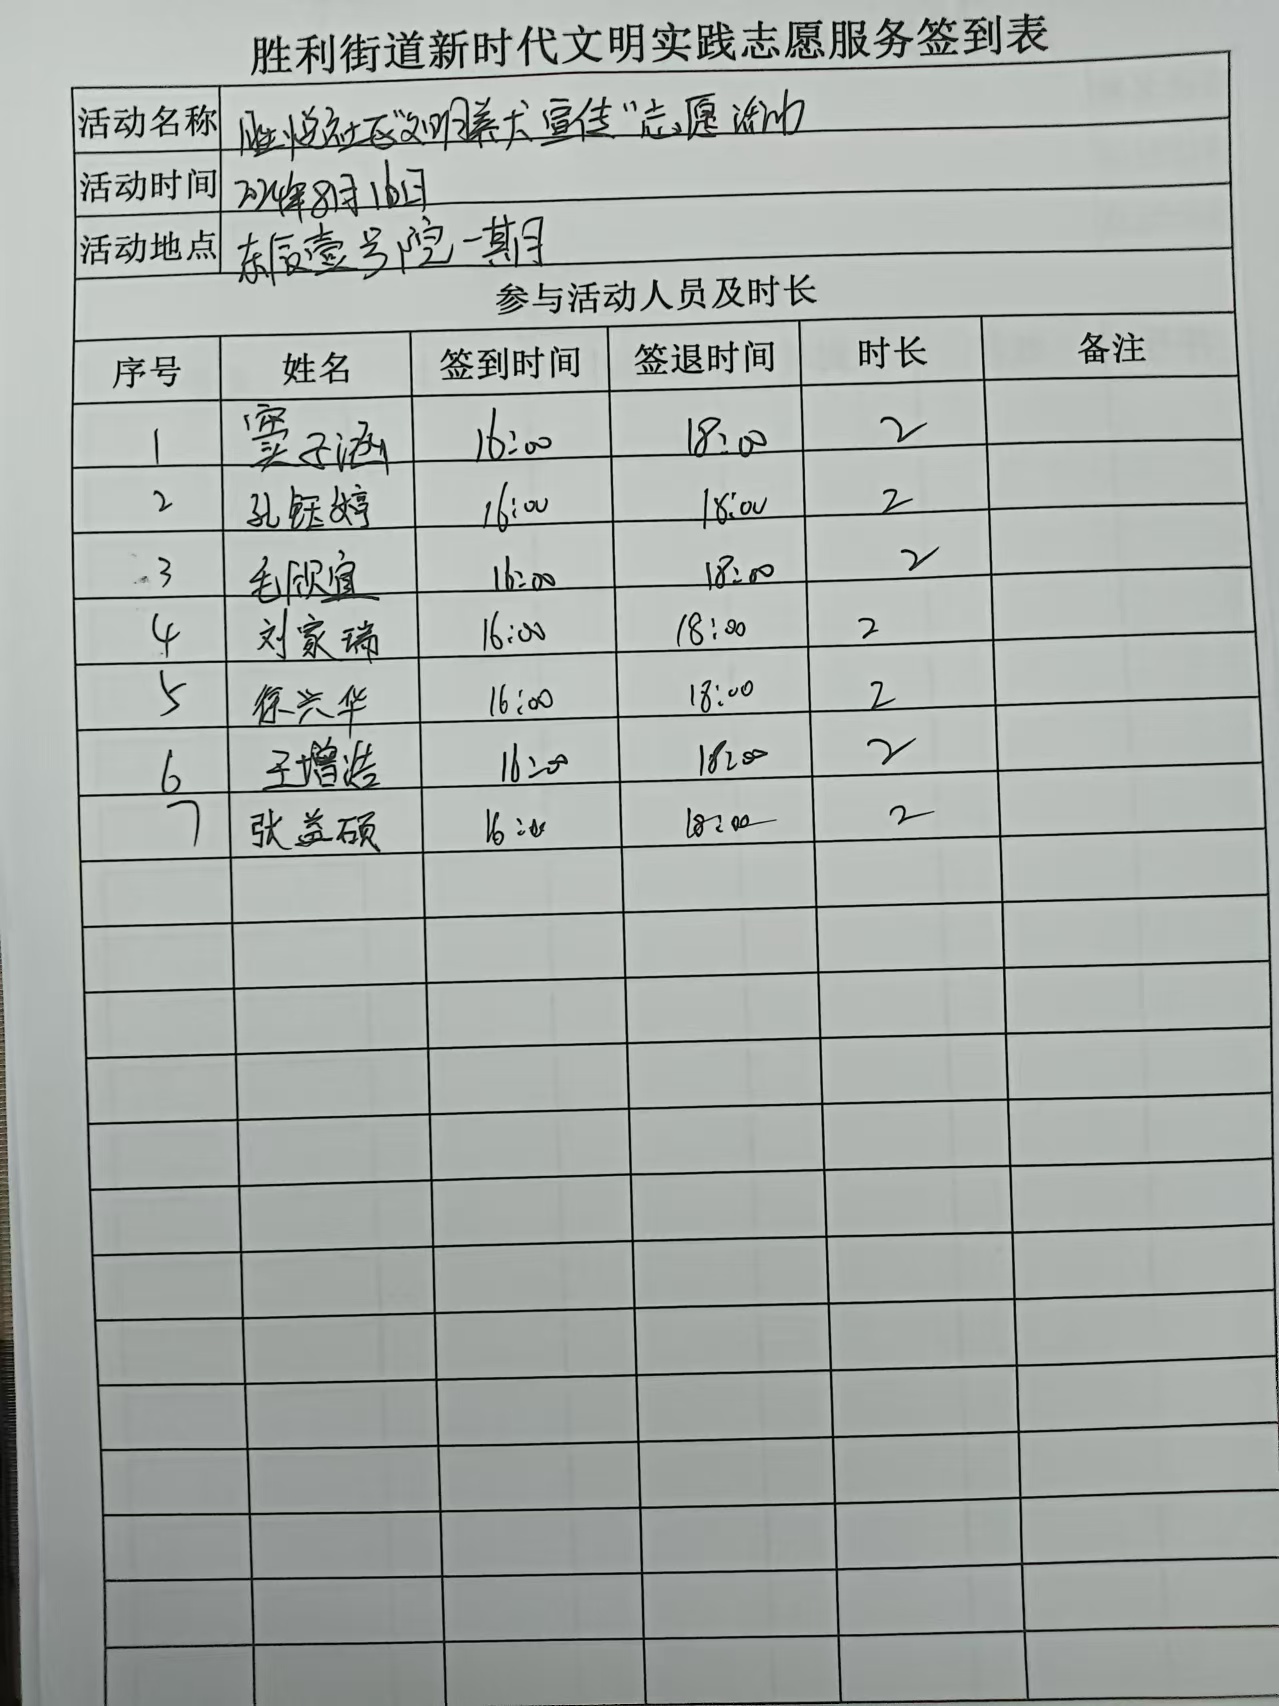 胜利街道新时代文明实践志愿服务签到表
活动名称 胜悦社区“文明养犬宣传”志愿活动
活动时间 2024年8月16日
活动地点 东辰壹号院一期
参与活动人员及时长
序号 姓名 签到时间 签退时间 时长 备注
1 窦子涵 16:00 18:00 2
2 孔钰婷 16:00 18:00 2
3 毛欣宜 16:00 18:00 2
4 刘家瑞 16:00 18:00 2
5 徐兴华 16:00 18:00 2
6 王增浩 16:00 18:00 2
7 张益硕 16:00 18:00 2